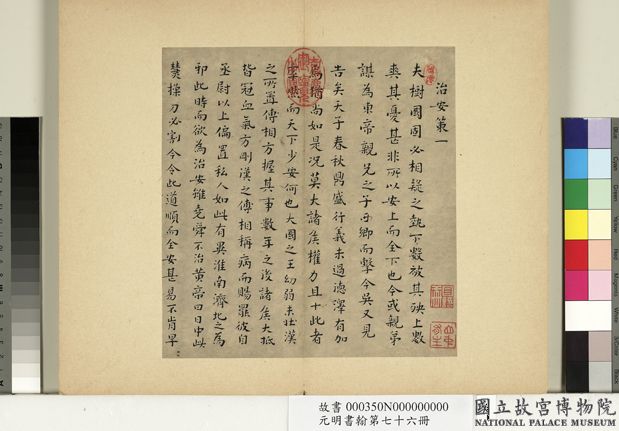 治安策一
夫樹國固必相疑之埶下數被其殃上數
爽其憂甚非所以安上而全下也今或親弟
謀為東帝親兄之子西鄉而擊今吳又見
告矣天子春秋鼎盛行義未過德澤有加
焉猶尚如是況莫大諸矦權力且十此者
虖然而天下少安何也大國之王幼弱未壯漢
之所置傅相方握其事數年之後諸矦大抵
皆冠血氣方剛漢之傅相稱病而賜罷彼自
丞尉以上偏置私人如此有異淮南濟北之為
邪此時而欲為治安雖堯舜不治黃帝曰日中必
熭操刀必割今令此道順而全安甚易不肯早
故書 000350N000000000
元明書翰第七十六冊
國立故宮博物院
NATIONAL PALACE MUSEUM